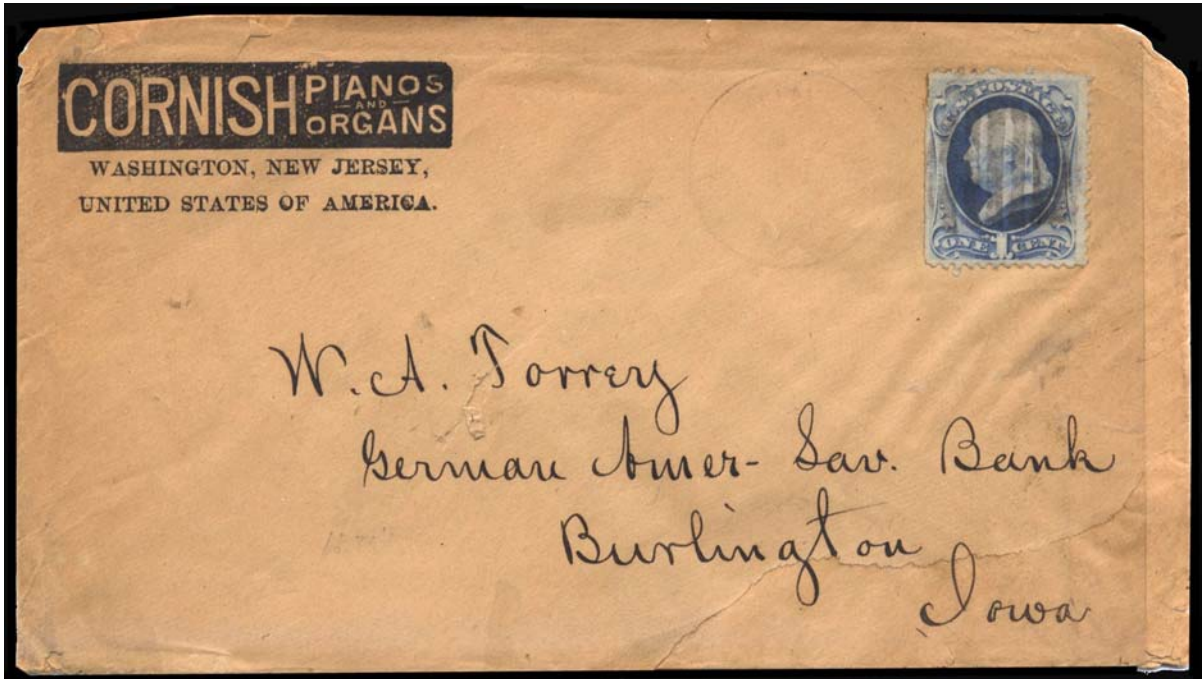 CORNISH PIANOS
AND
ORGANS
WASHINGTON, NEW JERSEY,
UNITED STATES OF AMERICA.
U.S. POSTAGE
ONE 1 CENT
W. A. Torrey
German Amer- Sav. Bank
Burlington
Iowa